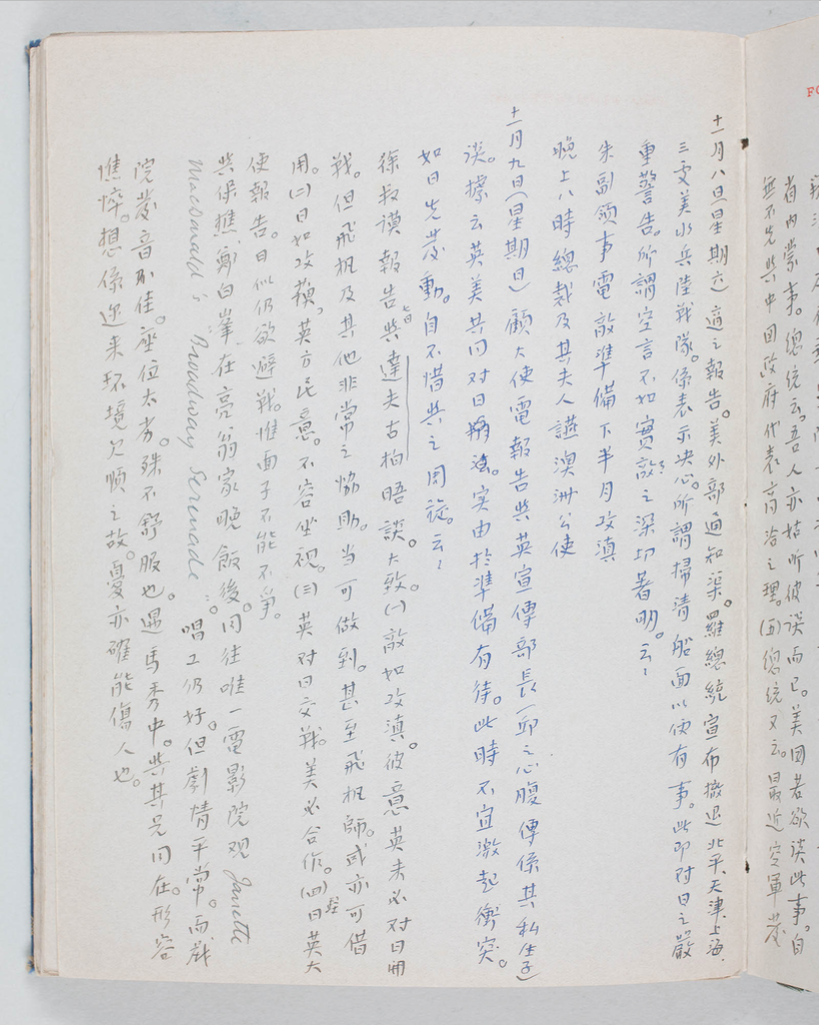 FO
省内蒙事。總統云。吾人亦姑听彼談而已。美国若欲談此事。自
無不先與中国政府代表商洽之理。(五)總統又云。最近空軍发
十一月八日(星期六) 適之報告。美外部通知渠。羅總統宣布撤退北平、天津、上海、
三处美水兵陸戰隊。係表示决心。所謂掃清船面以便有事。此即对日之嚴
重警告。所謂空言不如實敲之深切著明。云云
朱副領事電敵準備下半月攻滇
晚上八時總裁及其夫人讌澳洲公使
十一月九日(星期日) 顧大使電報告與英宣傳部長(邱之心腹傳係其私生子)
談。據云英美共同对日 实由於準備有待。此時不宜激起衝突。
如日先发動。自不惜與之周旋。云云
徐叔謨報告與達夫古柏晤談。大致。(一)敵如攻滇。彼意英未必对日開
戰。但飛机及其他非常之協助。当可做到。甚至飛机師。或亦可借
用。(二)日如攻蘇。英方民意。不容坐視。(三)英对日交戰。美必合作。(四)日英大
使報告。日似仍欲避戰。惟面子不能不争。
與保樵、鄭白峯在亮翁家晚飯後。同往唯一電影院观 Janette
Macdonald's Broadway Serenade。唱工仍好。但劇情平常。而戲
院发音不佳。座位太劣。殊不舒服也。遇馬秀中。與其兄同在。形容
憔悴。想係近来环境欠順之故。憂亦確能傷人也。